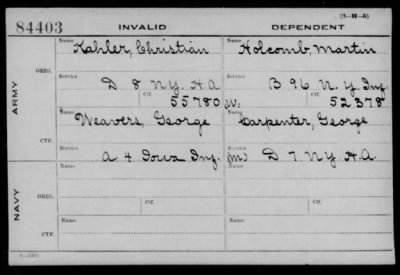 (3—H—5)
84403 INVALID DEPENDENT
ARMY
ORIG.
Name Kahler, Christian
Name Holcomb, Martin
Service D 8 N.Y. H.A
Service B 96 N.Y. Inf.
Ctf. 55780
W. Ctf. 52378
CTF.
Name Weavers, George
Name Carpenter, George
Service A 4 Iowa Inf.
Service (M) D 7 N.Y. H.A
NAVY
ORIG.
Name
Name
Service
Ctf.
Service
Ctf.
CTF.
Name
Name